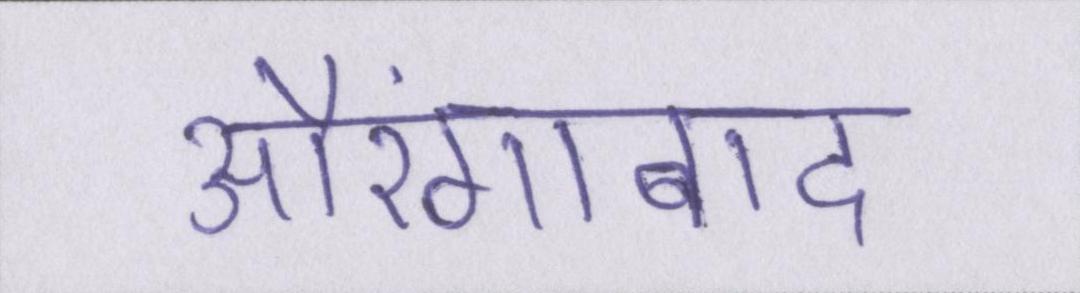 औरंगाबाद